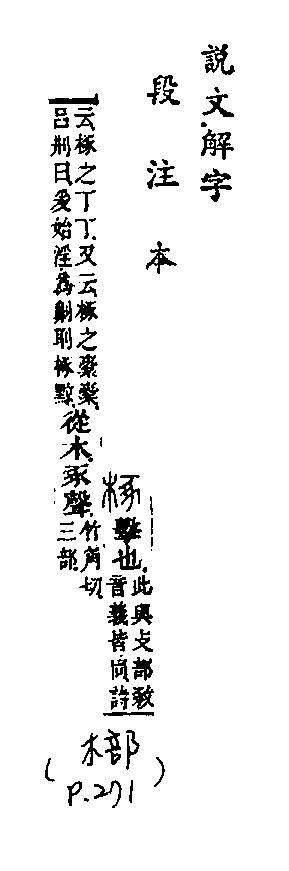 説文解字
段注本
椓
擊也
此與攴部㪬
音義皆同詩
云椓之丁丁又云椓之橐橐
呂刑曰爰始淫爲劓刵椓黥
從木豖聲
竹角切
三部
(木部
P.271)